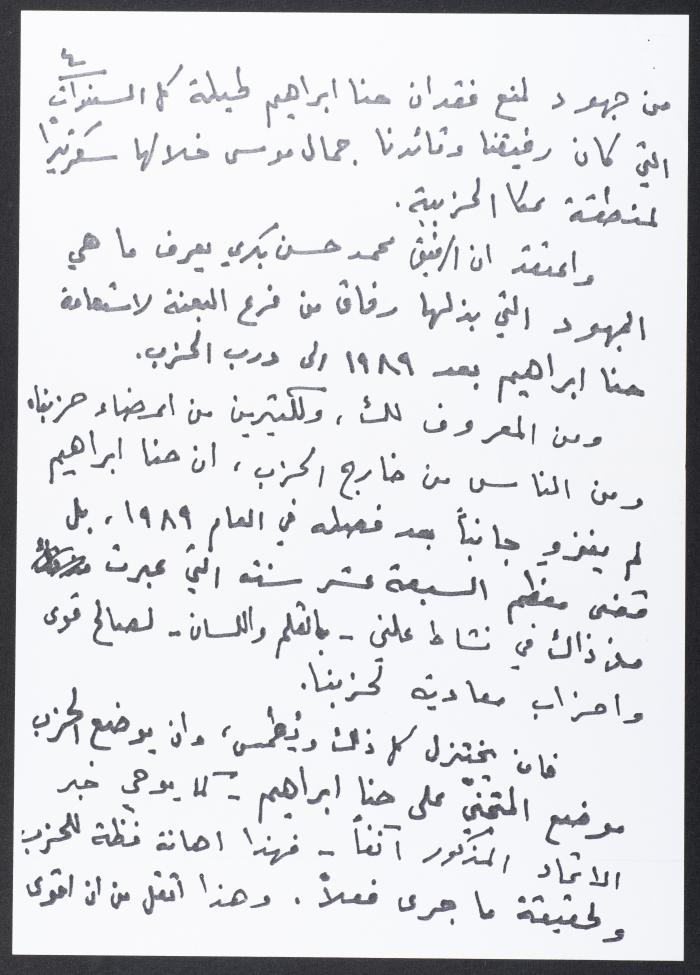 ٤
من جهود لمنع فقدان حنا ابراهيم طيلة كل السنوات
التي كان رفيقنا وقائدنا جمال موسى خلالها سكرتيرا
لمنطقة عكا الحزبية.
واعتقد ان الرفيق محمد حسن بكري يعرف ما هي
الجهود التي بذلها رفاق من فرع البعنة لاستعادة
حنا ابراهيم بعد ١٩٨٩ الى درب الحزب.
ومن المعروف لك، ولكثيرين من اعضاء حزبنا،
ومن الناس من خارج الحزب، ان حنا ابراهيم
لم ينزو جانباً بعد فصله في العام ١٩٨٩، بل
قضى معظم السبعة عشر سنة التي عبرت
منذ ذاك في نشاط علني - بالقلم واللسان - لصالح قوى
واحزاب معادية لحزبنا.
فان يختزل كل ذلك ويُطمس، وان يوضع الحزب
موضع المتجنّي على حنا ابراهيم - كما يوحي خبر
الاتحاد المذكور آنفاً - فهذا اهانة فظة للحزب
ولحقيقة ما جرى فعلاً. وهذا اثقل من ان اقوى